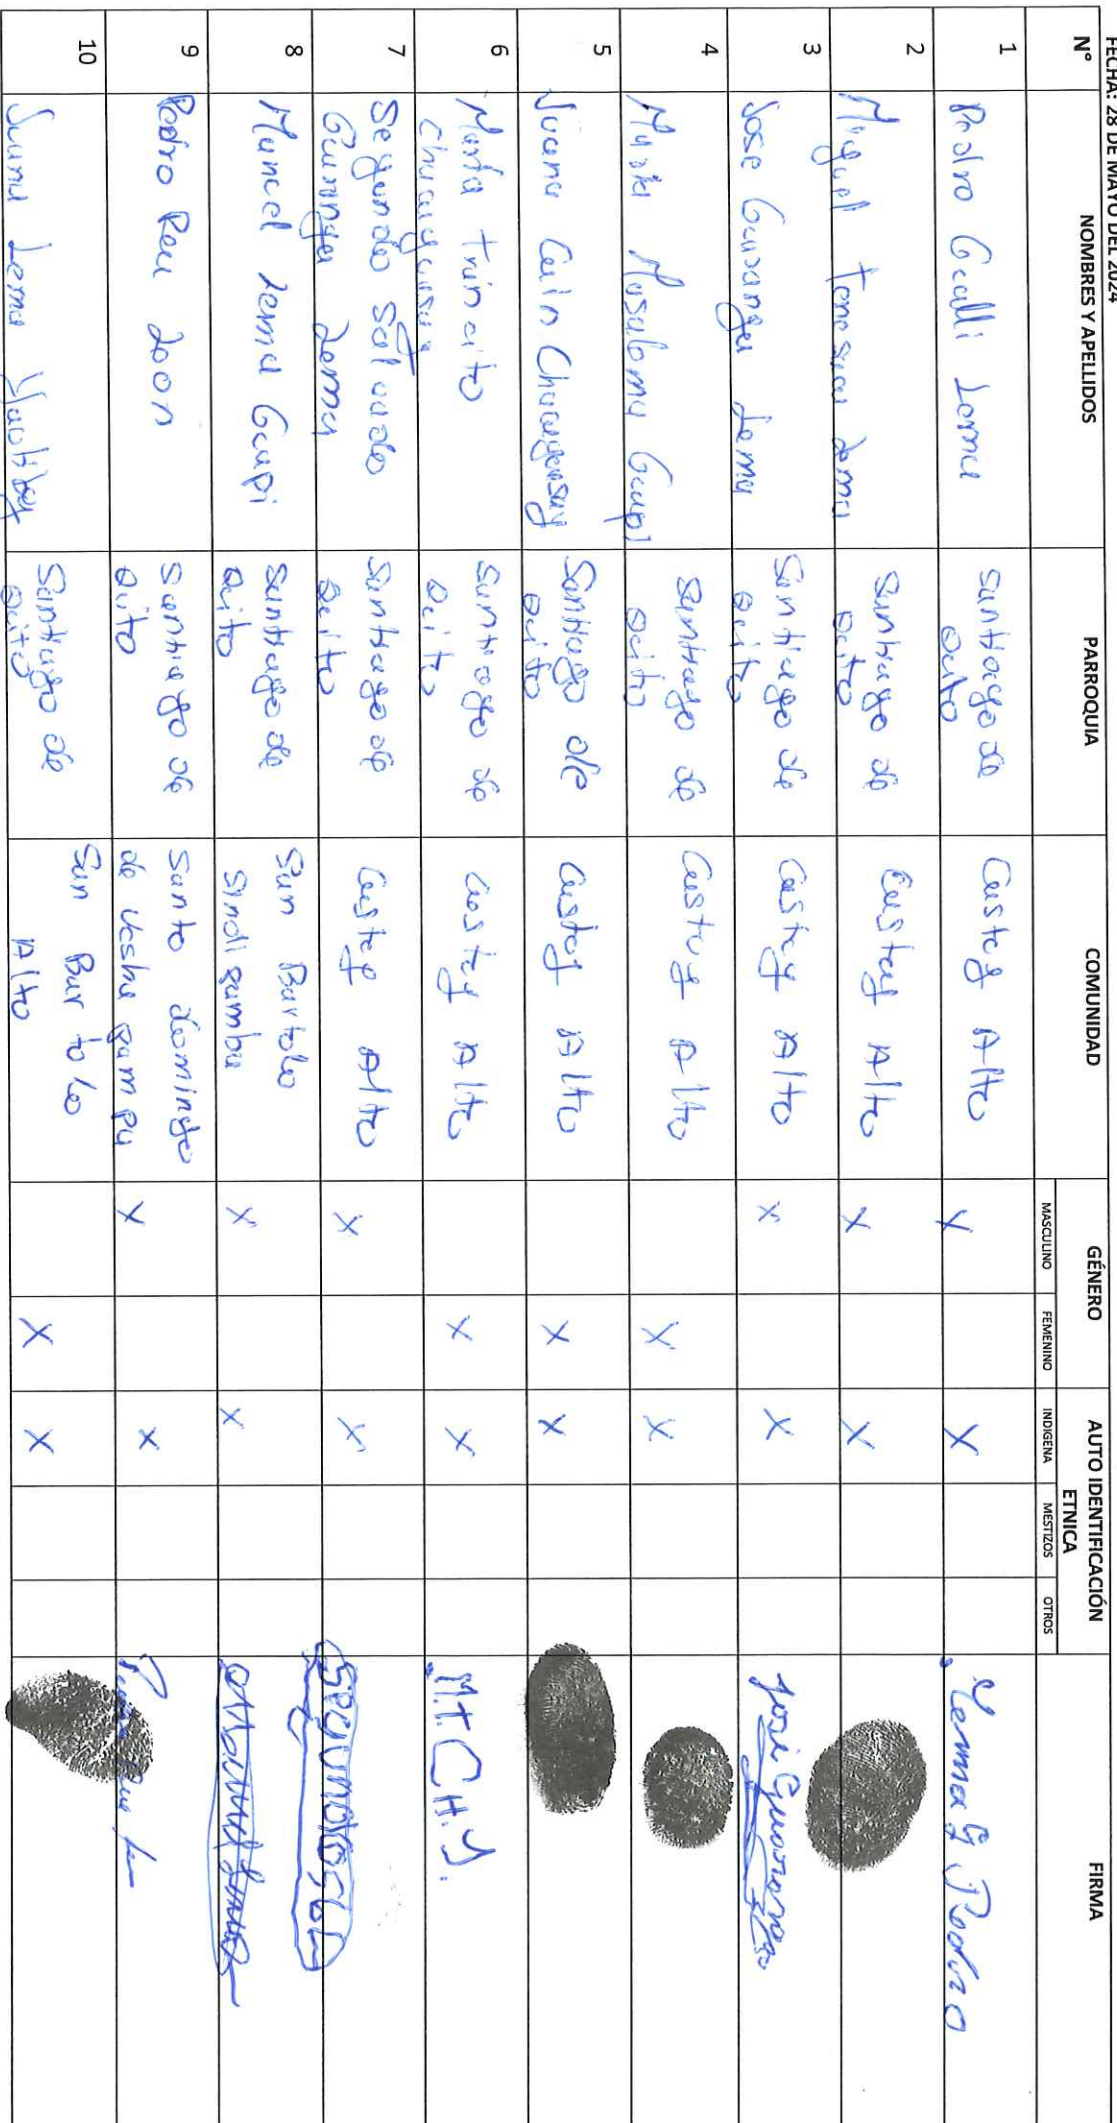 FECHA: 28 DE MAYO DEL 2024
N° NOMBRES Y APELLIDOS PARROQUIA COMUNIDAD GÉNERO AUTO IDENTIFICACIÓN ETNICA FIRMA
MASCULINO FEMENINO INDIGENA MESTIZOS OTROS
1 Pedro Gualli Lema Santiago de Quito Castug Alto X X Lema G Pedro
2 Miguel Lema Santiago de Quito Castug Alto X X
3 Jose Guaranga Lema Santiago de Quito Castug Alto X X José Guaranga
4 Maria Musaloma Guapi Santiago de Quito Castug Alto X X
5 Juana Cain Chucuyansay Santiago de Quito Castug Alto X X
6 Maria trincito Santiago de Quito Castug Alto X X M.T.CH.Y.
7 Segundo Salvado
Guaranga Lema Santiago de Quito Castug Alto X X
8 Manuel Lema Guapi Santiago de Quito San Bartolo
Sindigamba X X
9 Pedro Reu Loon Santiago de Quito Santo domingo
de Ucshapampa X X
10 Juana Lema Santiago de Quito San Bartolo
Alto X X